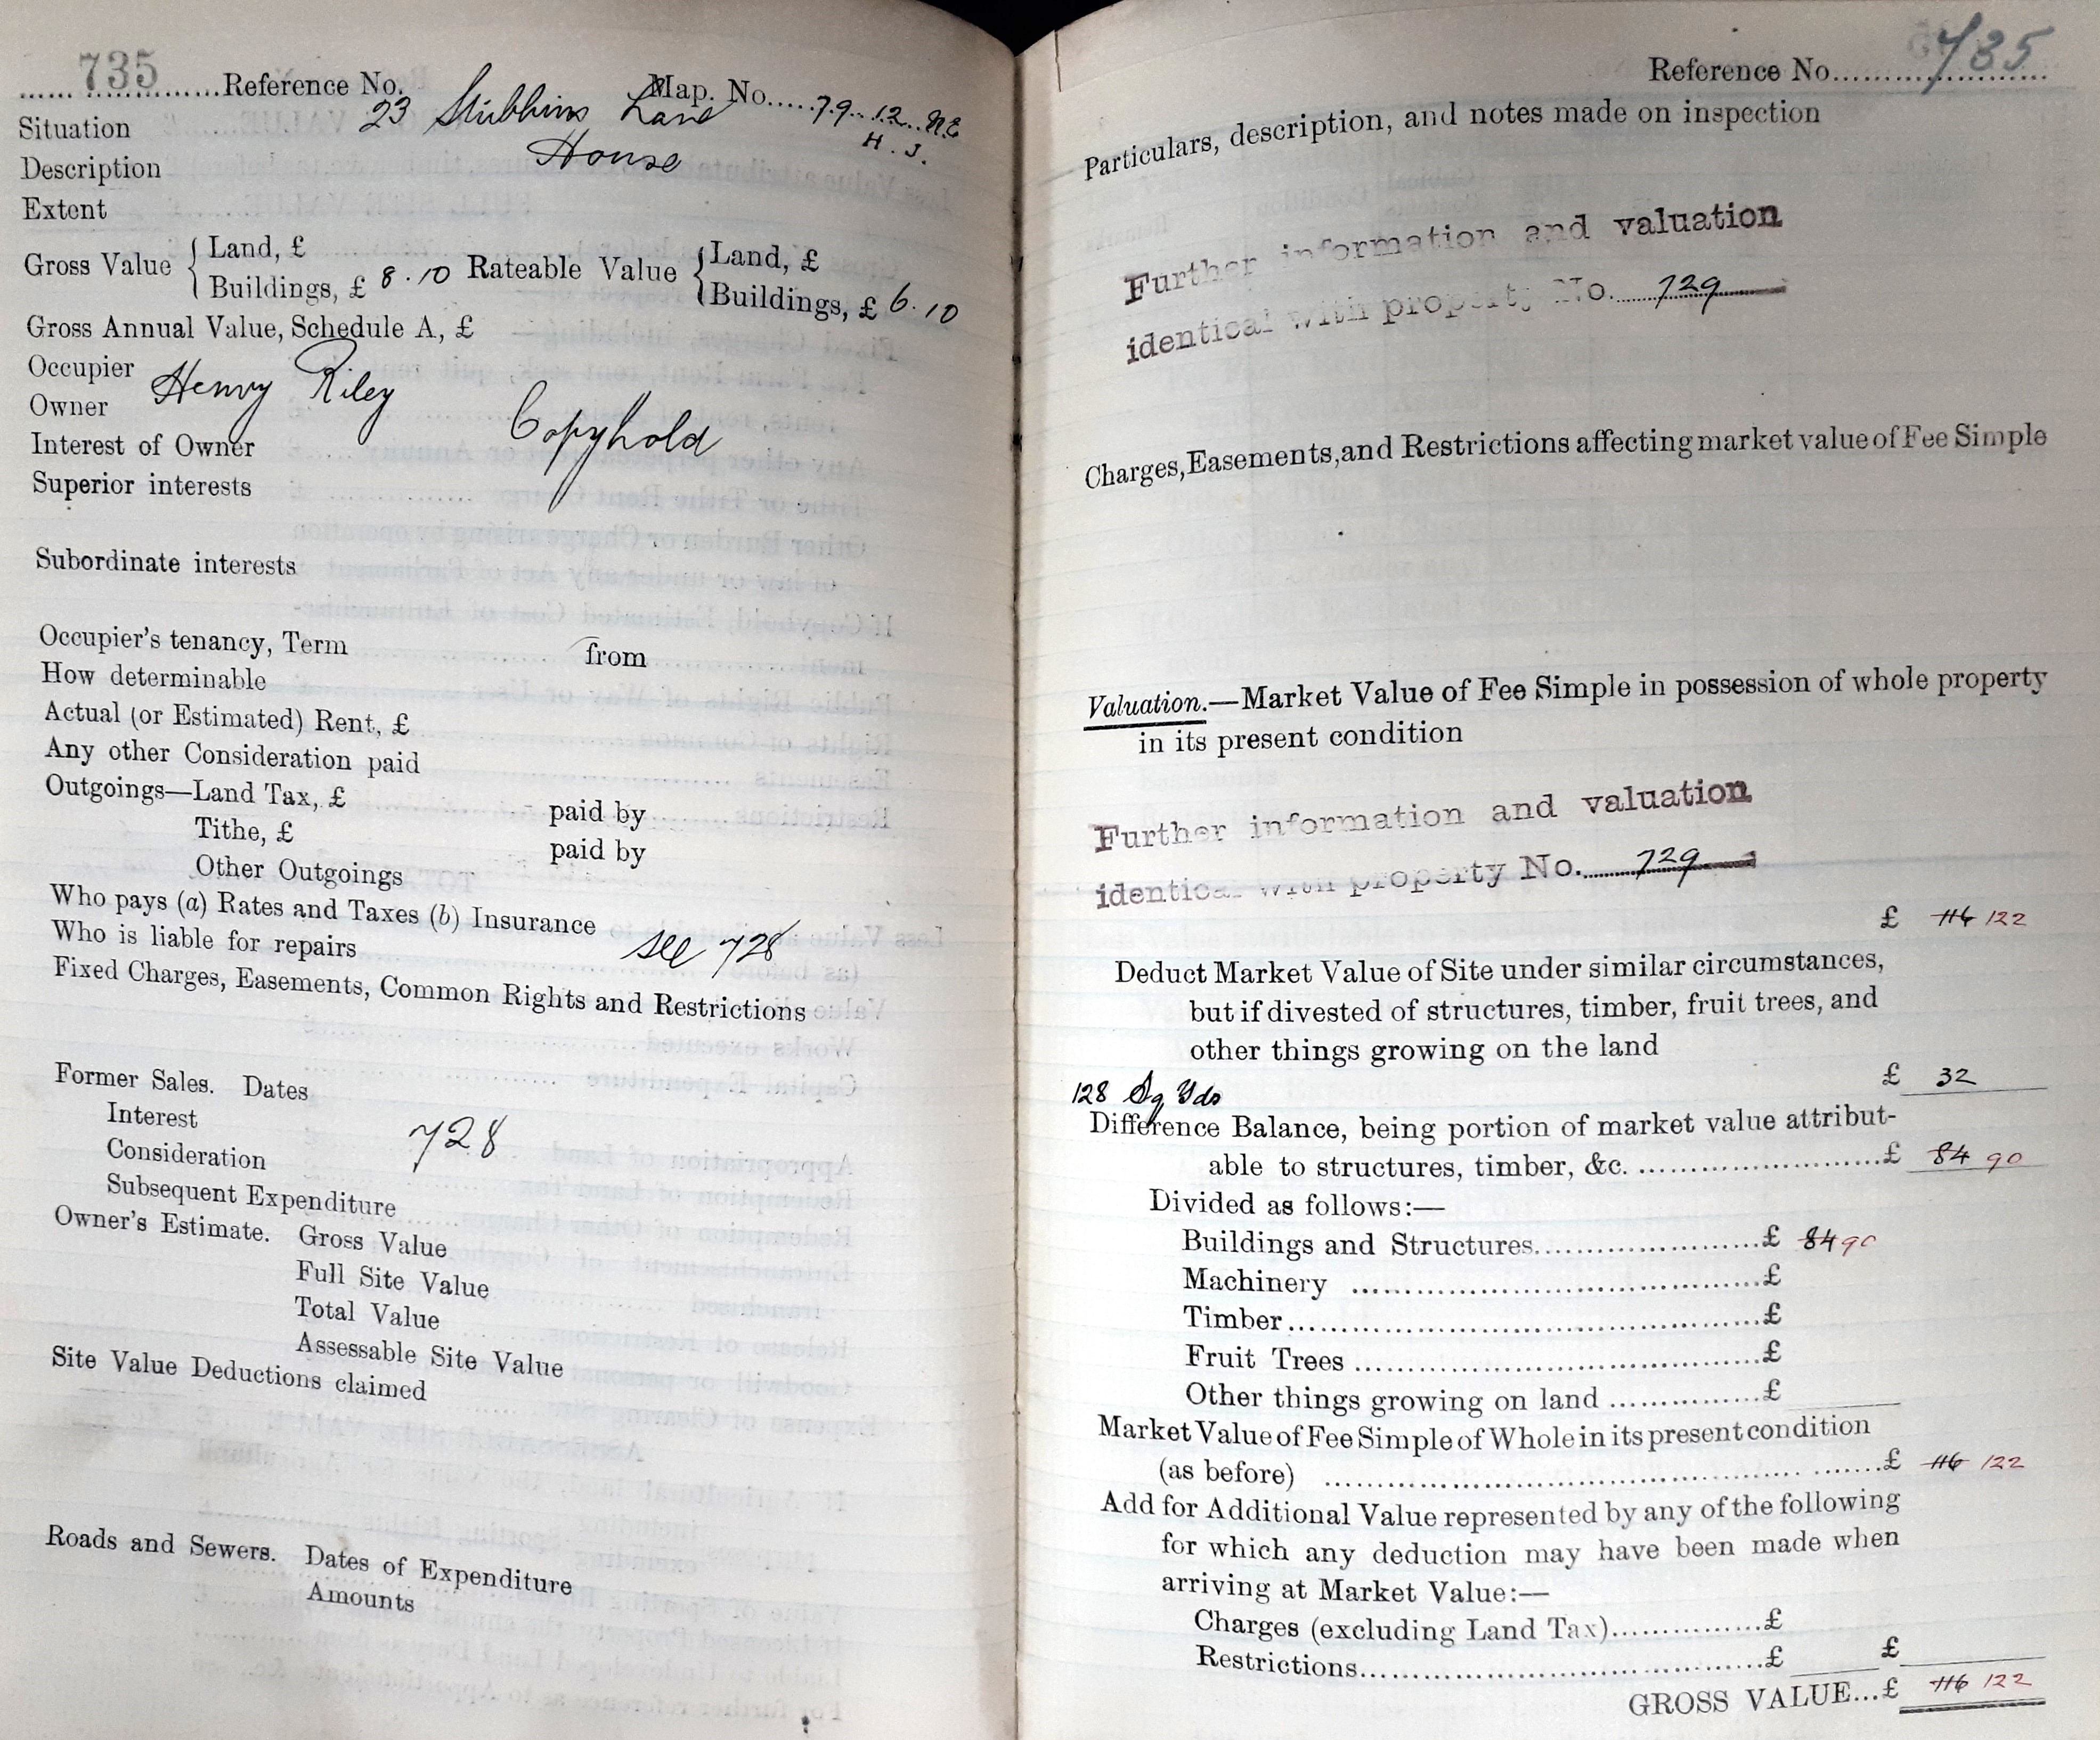 735 Reference No. Map. No. 79. 12. N.E
H. J.
Situation 23 Stubbins Lane
Description House
Extent
Gross Value { Land, £
Buildings, £ 8.10 Rateable Value { Land, £
Buildings, £ 6.10
Gross Annual Value, Schedule A, £
Occupier
Owner Henry Riley
Interest of Owner Copyhold
Superior interests
Subordinate interests
Occupier's tenancy, Term from
How determinable
Actual (or Estimated) Rent, £
Any other Consideration paid
Outgoings—Land Tax, £ paid by
Tithe, £ paid by
Other Outgoings
Who pays (a) Rates and Taxes (b) Insurance
Who is liable for repairs see 728
Fixed Charges, Easements, Common Rights and Restrictions
Former Sales. Dates
Interest
Consideration 728
Subsequent Expenditure
Owner's Estimate. Gross Value
Full Site Value
Total Value
Assessable Site Value
Site Value Deductions claimed
Roads and Sewers. Dates of Expenditure
Amounts
Reference No. 735
Particulars, description, and notes made on inspection
Further information and valuation
identical with property No. 729
Charges, Easements, and Restrictions affecting market value of Fee Simple
Valuation.—Market Value of Fee Simple in possession of whole property
in its present condition
Further information and valuation
identical with property No. 729
£ 116 122
Deduct Market Value of Site under similar circumstances,
but if divested of structures, timber, fruit trees, and
other things growing on the land
£ 32
128 Sq Yds
Difference Balance, being portion of market value attribut-
able to structures, timber, &c. £ 84 90
Divided as follows:—
Buildings and Structures £ 84 90
Machinery £
Timber £
Fruit Trees £
Other things growing on land £
Market Value of Fee Simple of Whole in its present condition
(as before) £ 116 122
Add for Additional Value represented by any of the following
for which any deduction may have been made when
arriving at Market Value:—
Charges (excluding Land Tax) £
Restrictions £ £
GROSS VALUE... £ 116 122